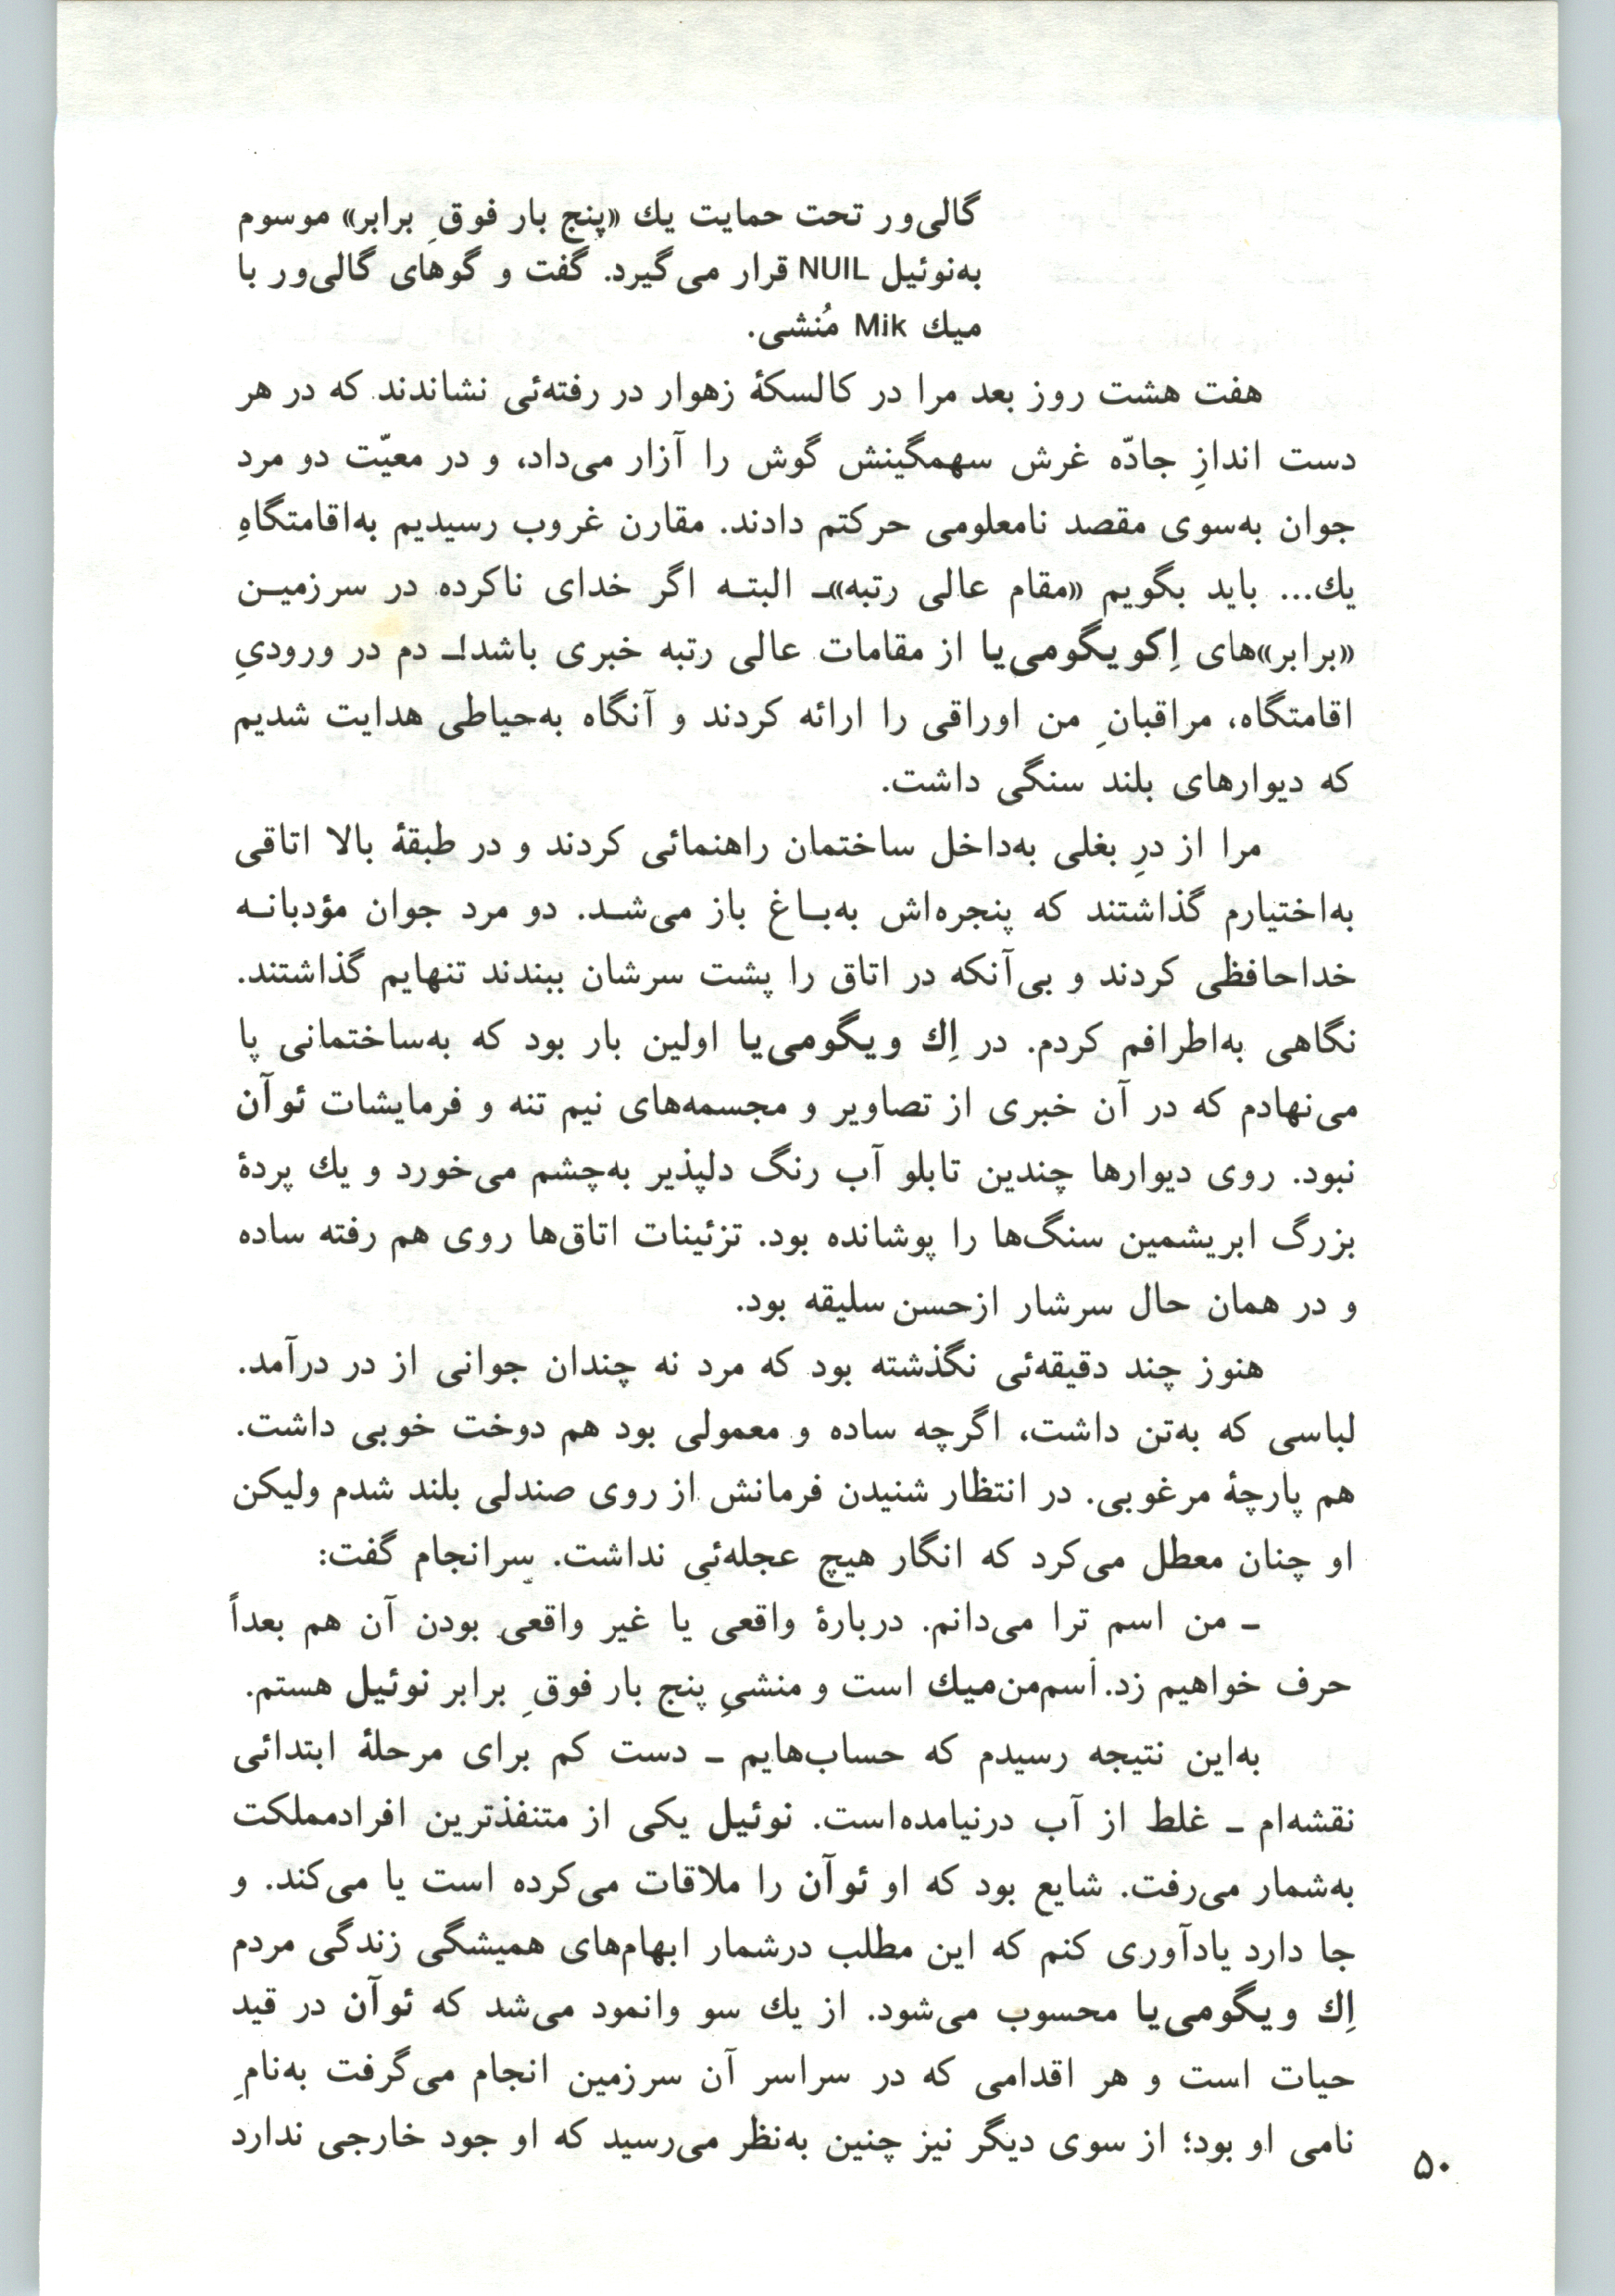 گالی‌ور تحت حمایت یك «پنج بار فوقِ برابر» موسوم
به‌نوئیل NUIL قرار می‌گیرد. گفت و گوهای گالی‌ور با
میك Mik مُنشی.
هفت هشت روز بعد مرا در کالسکهٔ زهوار در رفته‌ئی نشاندند که در هر
دست اندازِ جادّه غرش سهمگینش گوش را آزار می‌داد، و در معیّت دو مرد
جوان به‌سوی مقصد نامعلومی حرکتم دادند. مقارن غروب رسیدیم به‌اقامتگاهِ
یك... باید بگویم «مقام عالی رتبه»ــ البتـه اگر خدای ناکرده در سرزمیـن
«برابر»های اِکویگومی‌یا از مقامات عالی رتبه خبری باشد!ــ دم در ورودیِ
اقامتگاه، مراقبانِ من اوراقی را ارائه کردند و آنگاه به‌حیاطی هدایت شدیم
که دیوارهای بلند سنگی داشت.
مرا از درِ بغلی به‌داخل ساختمان راهنمائی کردند و در طبقهٔ بالا اتاقی
به‌اختیارم گذاشتند که پنجره‌اش به‌بـاغ باز می‌شـد. دو مرد جوان مؤدبانـه
خداحافظی کردند و بی‌آنکه در اتاق را پشت سرشان ببندند تنهایم گذاشتند.
نگاهی به‌اطرافم کردم. در اِك ویگومی‌یا اولین بار بود که به‌ساختمانی پا
می‌نهادم که در آن خبری از تصاویر و مجسمه‌های نیم تنه و فرمایشات ئوآن
نبود. روی دیوارها چندین تابلو آب رنگ دلپذیر به‌چشم می‌خورد و یك پردهٔ
بزرگ ابریشمین سنگ‌ها را پوشانده بود. تزئینات اتاق‌ها روی هم رفته ساده
و در همان حال سرشار ازحسن سلیقه بود.
هنوز چند دقیقه‌ئی نگذشته بود که مرد نه چندان جوانی از در درآمد.
لباسی که به‌تن داشت، اگرچه ساده و معمولی بود هم دوخت خوبی داشت.
هم پارچهٔ مرغوبی. در انتظار شنیدن فرمانش از روی صندلی بلند شدم ولیکن
او چنان معطل می‌کرد که انگار هیچ عجله‌ئی نداشت. سرانجام گفت:
ــ من اسم ترا می‌دانم. دربارهٔ واقعی یا غیر واقعی بودن آن هم بعداً
حرف خواهیم زد. اسم‌من‌میك است و منشیِ پنج بار فوقِ برابر نوئیل هستم.
به‌این نتیجه رسیدم که حساب‌هایم ــ دست کم برای مرحلهٔ ابتدائی
نقشه‌ام ــ غلط از آب درنیامده‌است. نوئیل یکی از متنفذترین افرادمملکت
به‌شمار می‌رفت. شایع بود که او ئوآن را ملاقات می‌کرده است یا می‌کند. و
جا دارد یادآوری کنم که این مطلب درشمار ابهام‌های همیشگی زندگی مردم
اِك ویگومی‌یا محسوب می‌شود. از یك سو وانمود می‌شد که ئوآن در قید
حیات است و هر اقدامی که در سراسر آن سرزمین انجام می‌گرفت به‌نامِ
نامی او بود؛ از سوی دیگر نیز چنین به‌نظر می‌رسید که او جود خارجی ندارد
۵۰